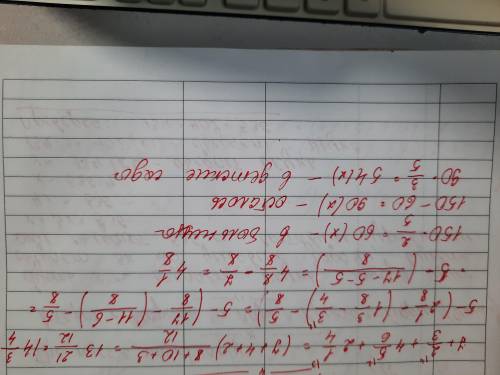 7 2/3 + 4 5/6 + 2 1/4 = (7+4+2) (8+10+3)/12 = 13 21/12 = 14 3/4
5 - (2 1/8 - (1 3/8 - 3/4) - 5/8) = 5 - (17/8 - (11-6)/8) - 5/8 =
= 5 - ((17-5-5)/8) = 4 8/8 - 7/8 = 4 1/8
150 · 2/5 = 60 (к) - в больницу
150 - 60 = 90 (к) - осталось
90 · 3/5 = 54 (к) - в детские сады